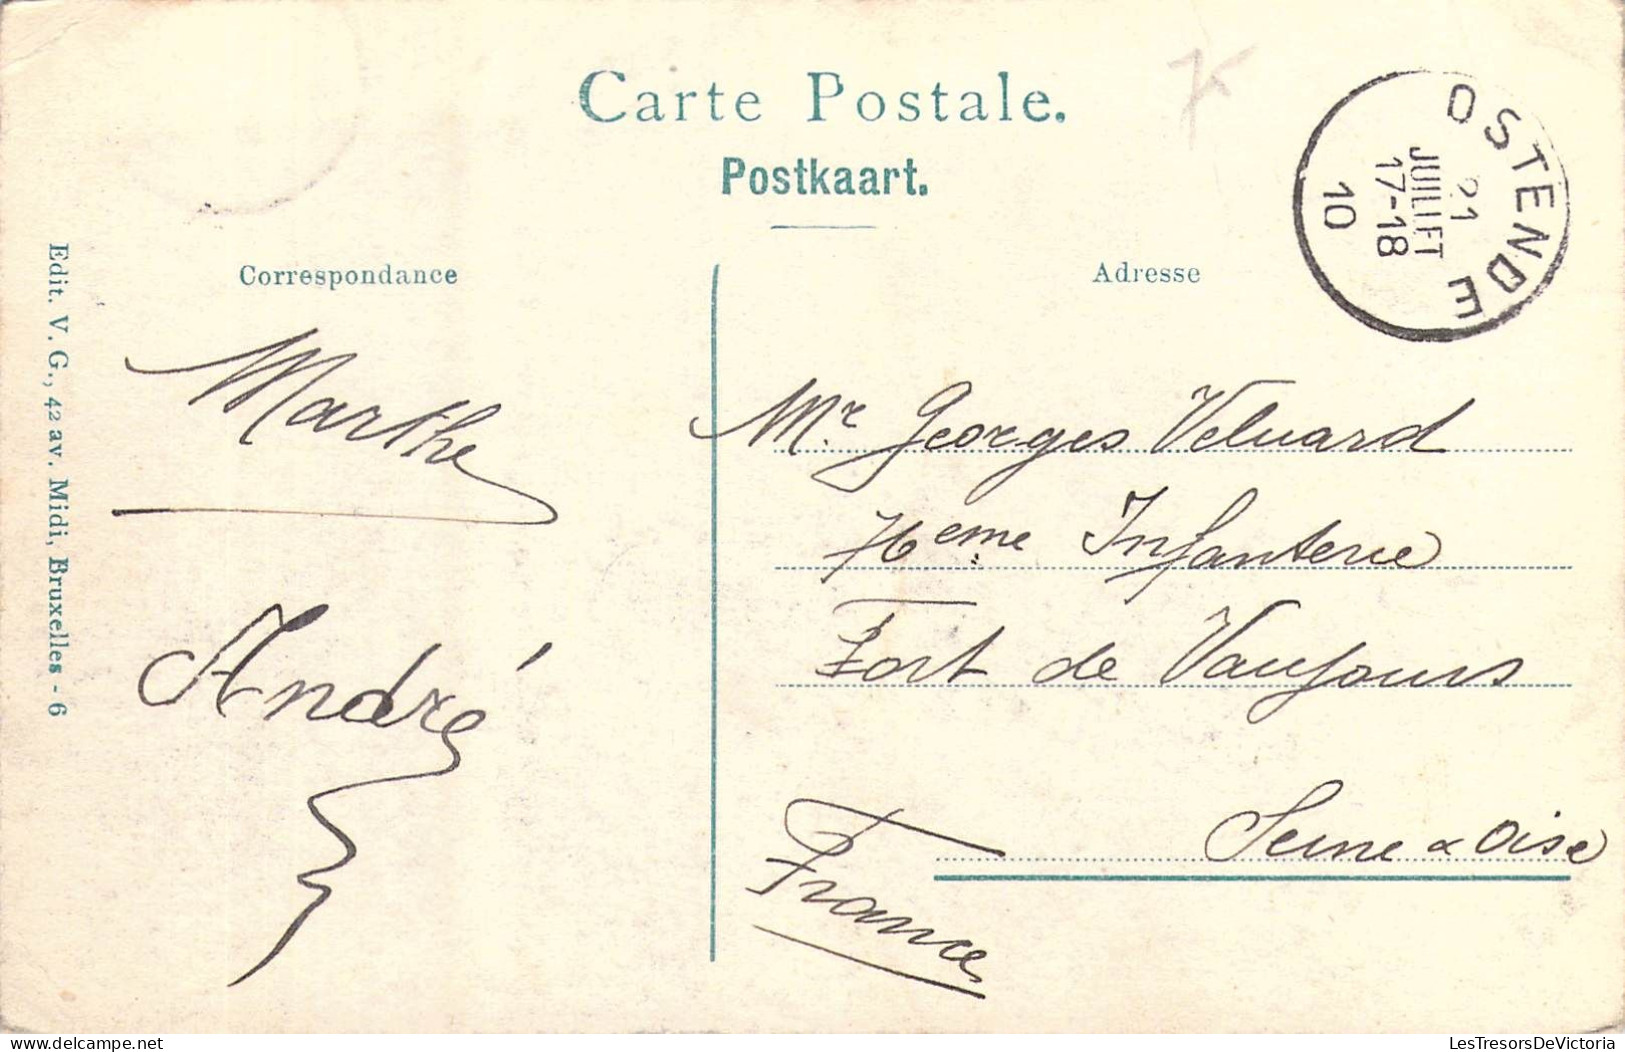 Carte Postale.
Postkaart.
OSTENDE
21
JUILLET
17-18
10
Correspondance
Adresse
Edit. V. G., 42 av. Midi, Bruxelles - 6
Marthe
André
Mr. Georges Veluard
76eme Infanterie
Fort de Vaujours
Seine & Oise
France
LesTresorsDeVictoria